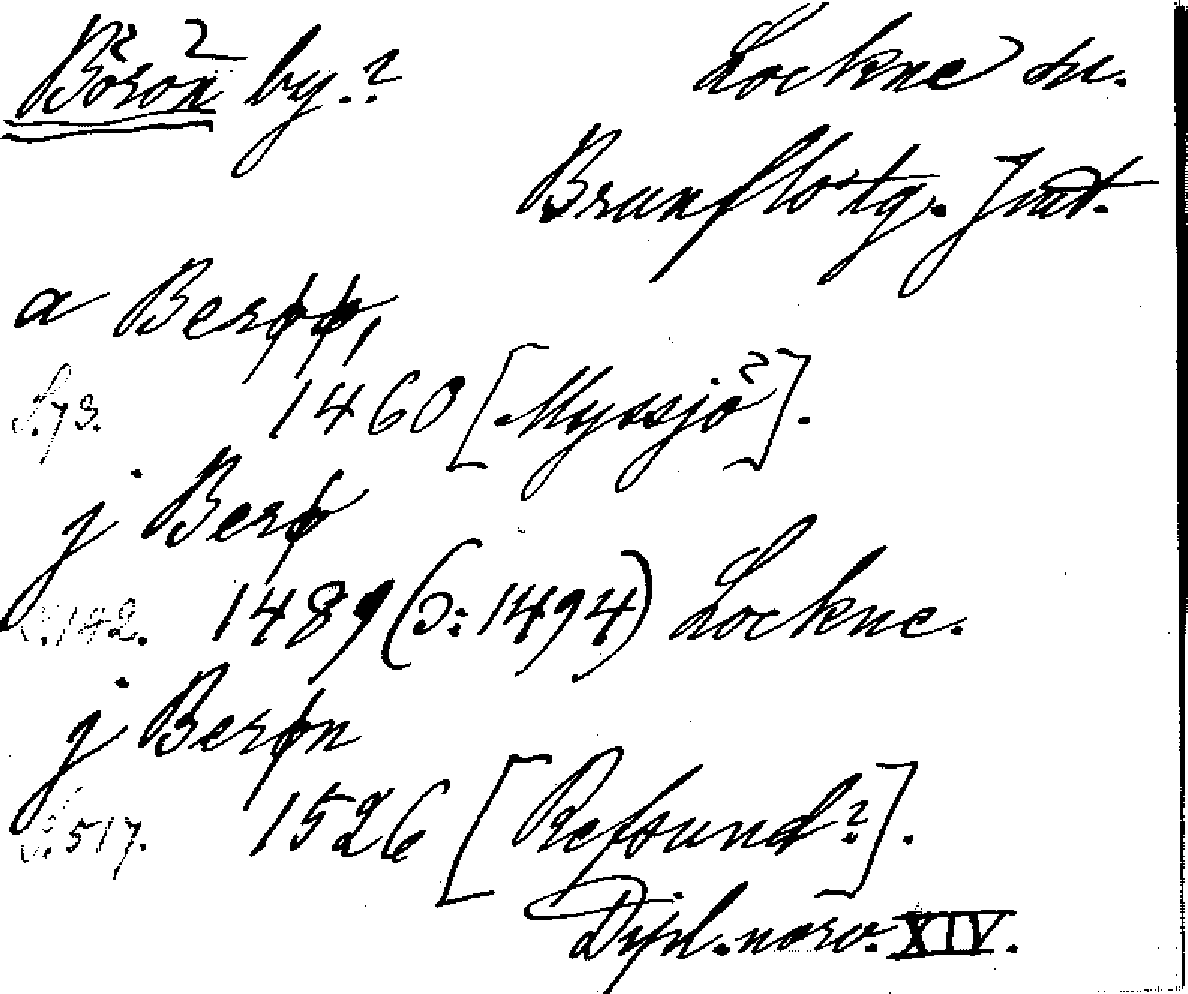 Börön by.? Lockne sn.
Brunflo tg. Jmt.
a Berøø,
S.73. 1460 [Myssjö].
j Berø
S.142. 1489 (ɔ: 1494) Lockne.
j Berøn
S.517. 1526 [Refsund?].
Dipl. norv. XIV.